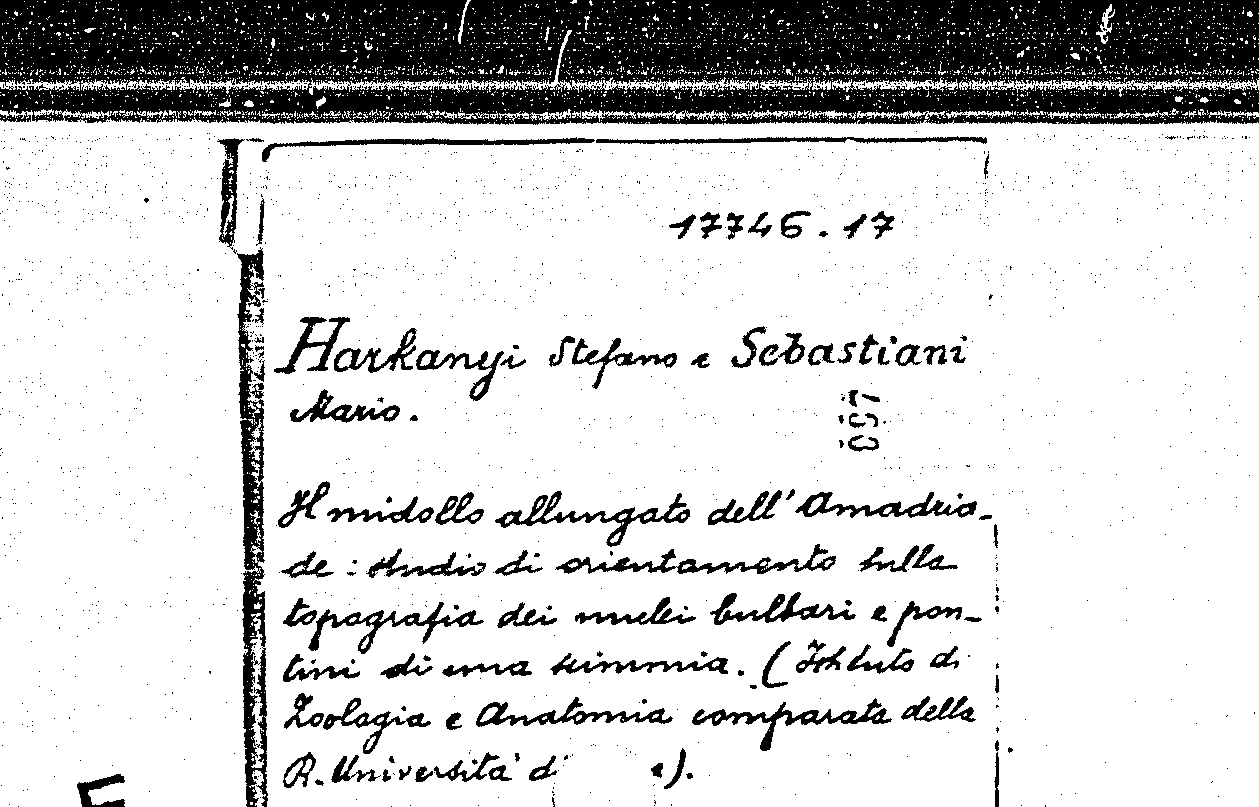 17746.17
Harkanyi Stefano e Sebastiani
Mario.
097
Il midollo allungato dell'Amadria-
de : studio di orientamento sulla
topografia dei nuclei bulbari e pon-
tini di una scimmia. (Istituto di
Zoologia e Anatomia comparata della
R. Università d e).
E